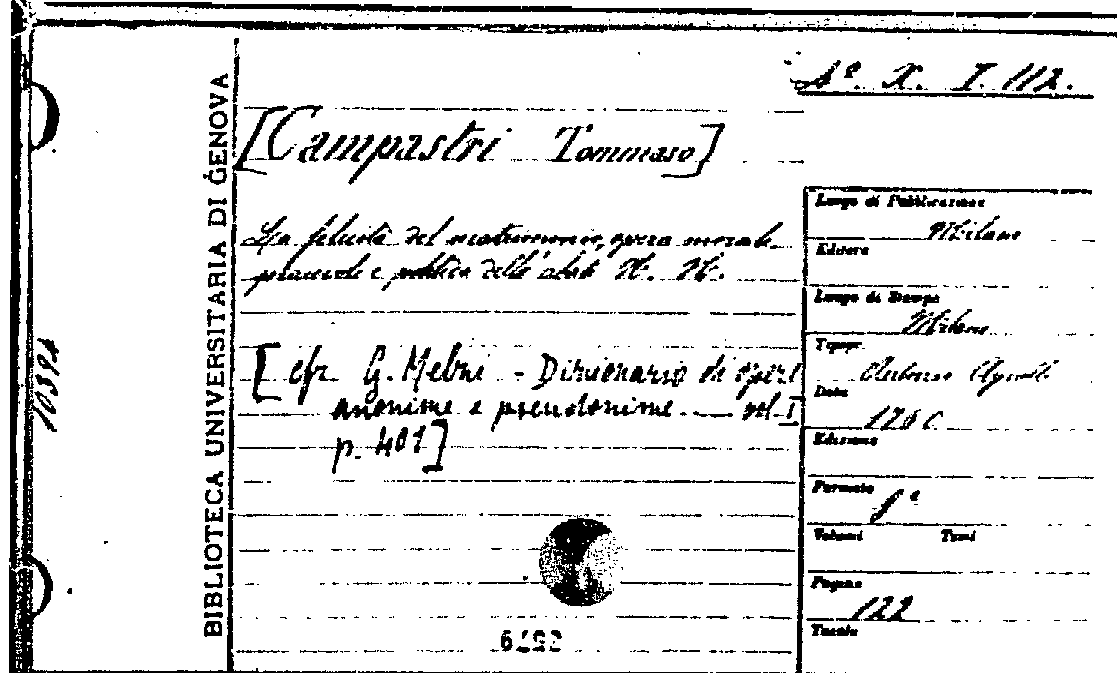 Aº. X. I. 112.
BIBLIOTECA UNIVERSITARIA DI GENOVA
[Campastri Tommaso]
La felicità del matrimonio, opera morale
piacevole e politica dell'abate N. N.
[cfr. G. Melzi - Dizionario di opere
anonime e pseudonime. — vol. I
p. 401]
Luogo di Pubblicazione
Milano
Editore
Luogo di Stampa
Milano
Tipogr.
Antonio
Data
Edizione
Formato
8º
Volumi Tomi
Pagine
122
Tavole